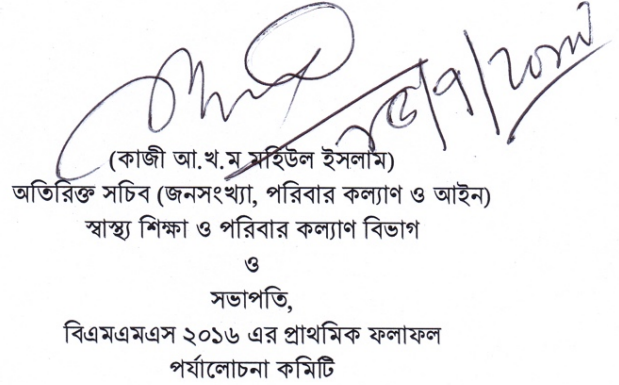 (কাজী আ.খ.ম মহিউল ইসলাম)
অতিরিক্ত সচিব (জনসংখ্যা, পরিবার কল্যাণ ও আইন)
স্বাস্থ্য শিক্ষা ও পরিবার কল্যাণ বিভাগ
ও
সভাপতি,
বিএমএমএস ২০১৬ এর প্রাথমিক ফলাফল
পর্যালোচনা কমিটি